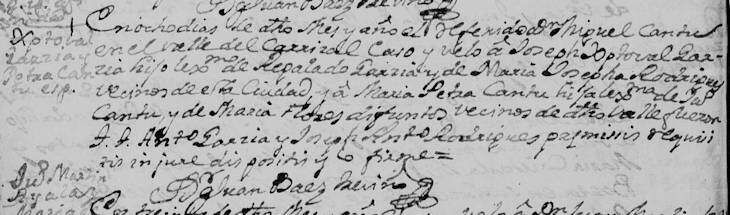 Br Juan Baez Treviño
Xptoval
Garzia y
Petra Can
tu esp.
En ocho dias de dho Mes y año el referido Dr Miguel Cantu
en el valle del Carrizal Caso y velo â Joseph Xptoval Gar-
zia hijo lexmo de Regalado Garzia y de Maria Josepha Rodrigues
vecinos de esta Ciudad, y â Maria Petra Cantu hija lexma de Jun
Cantu, y de Maria Flores difuntos vecinos de dho valle fueron
Anto Garzia y Joseph Anto Rodrigues premissis requisi
tis in jure dispositis y lo firme =
Br Juan Baez Treviño
Jun Martin
Ayala
En dho Mes y año